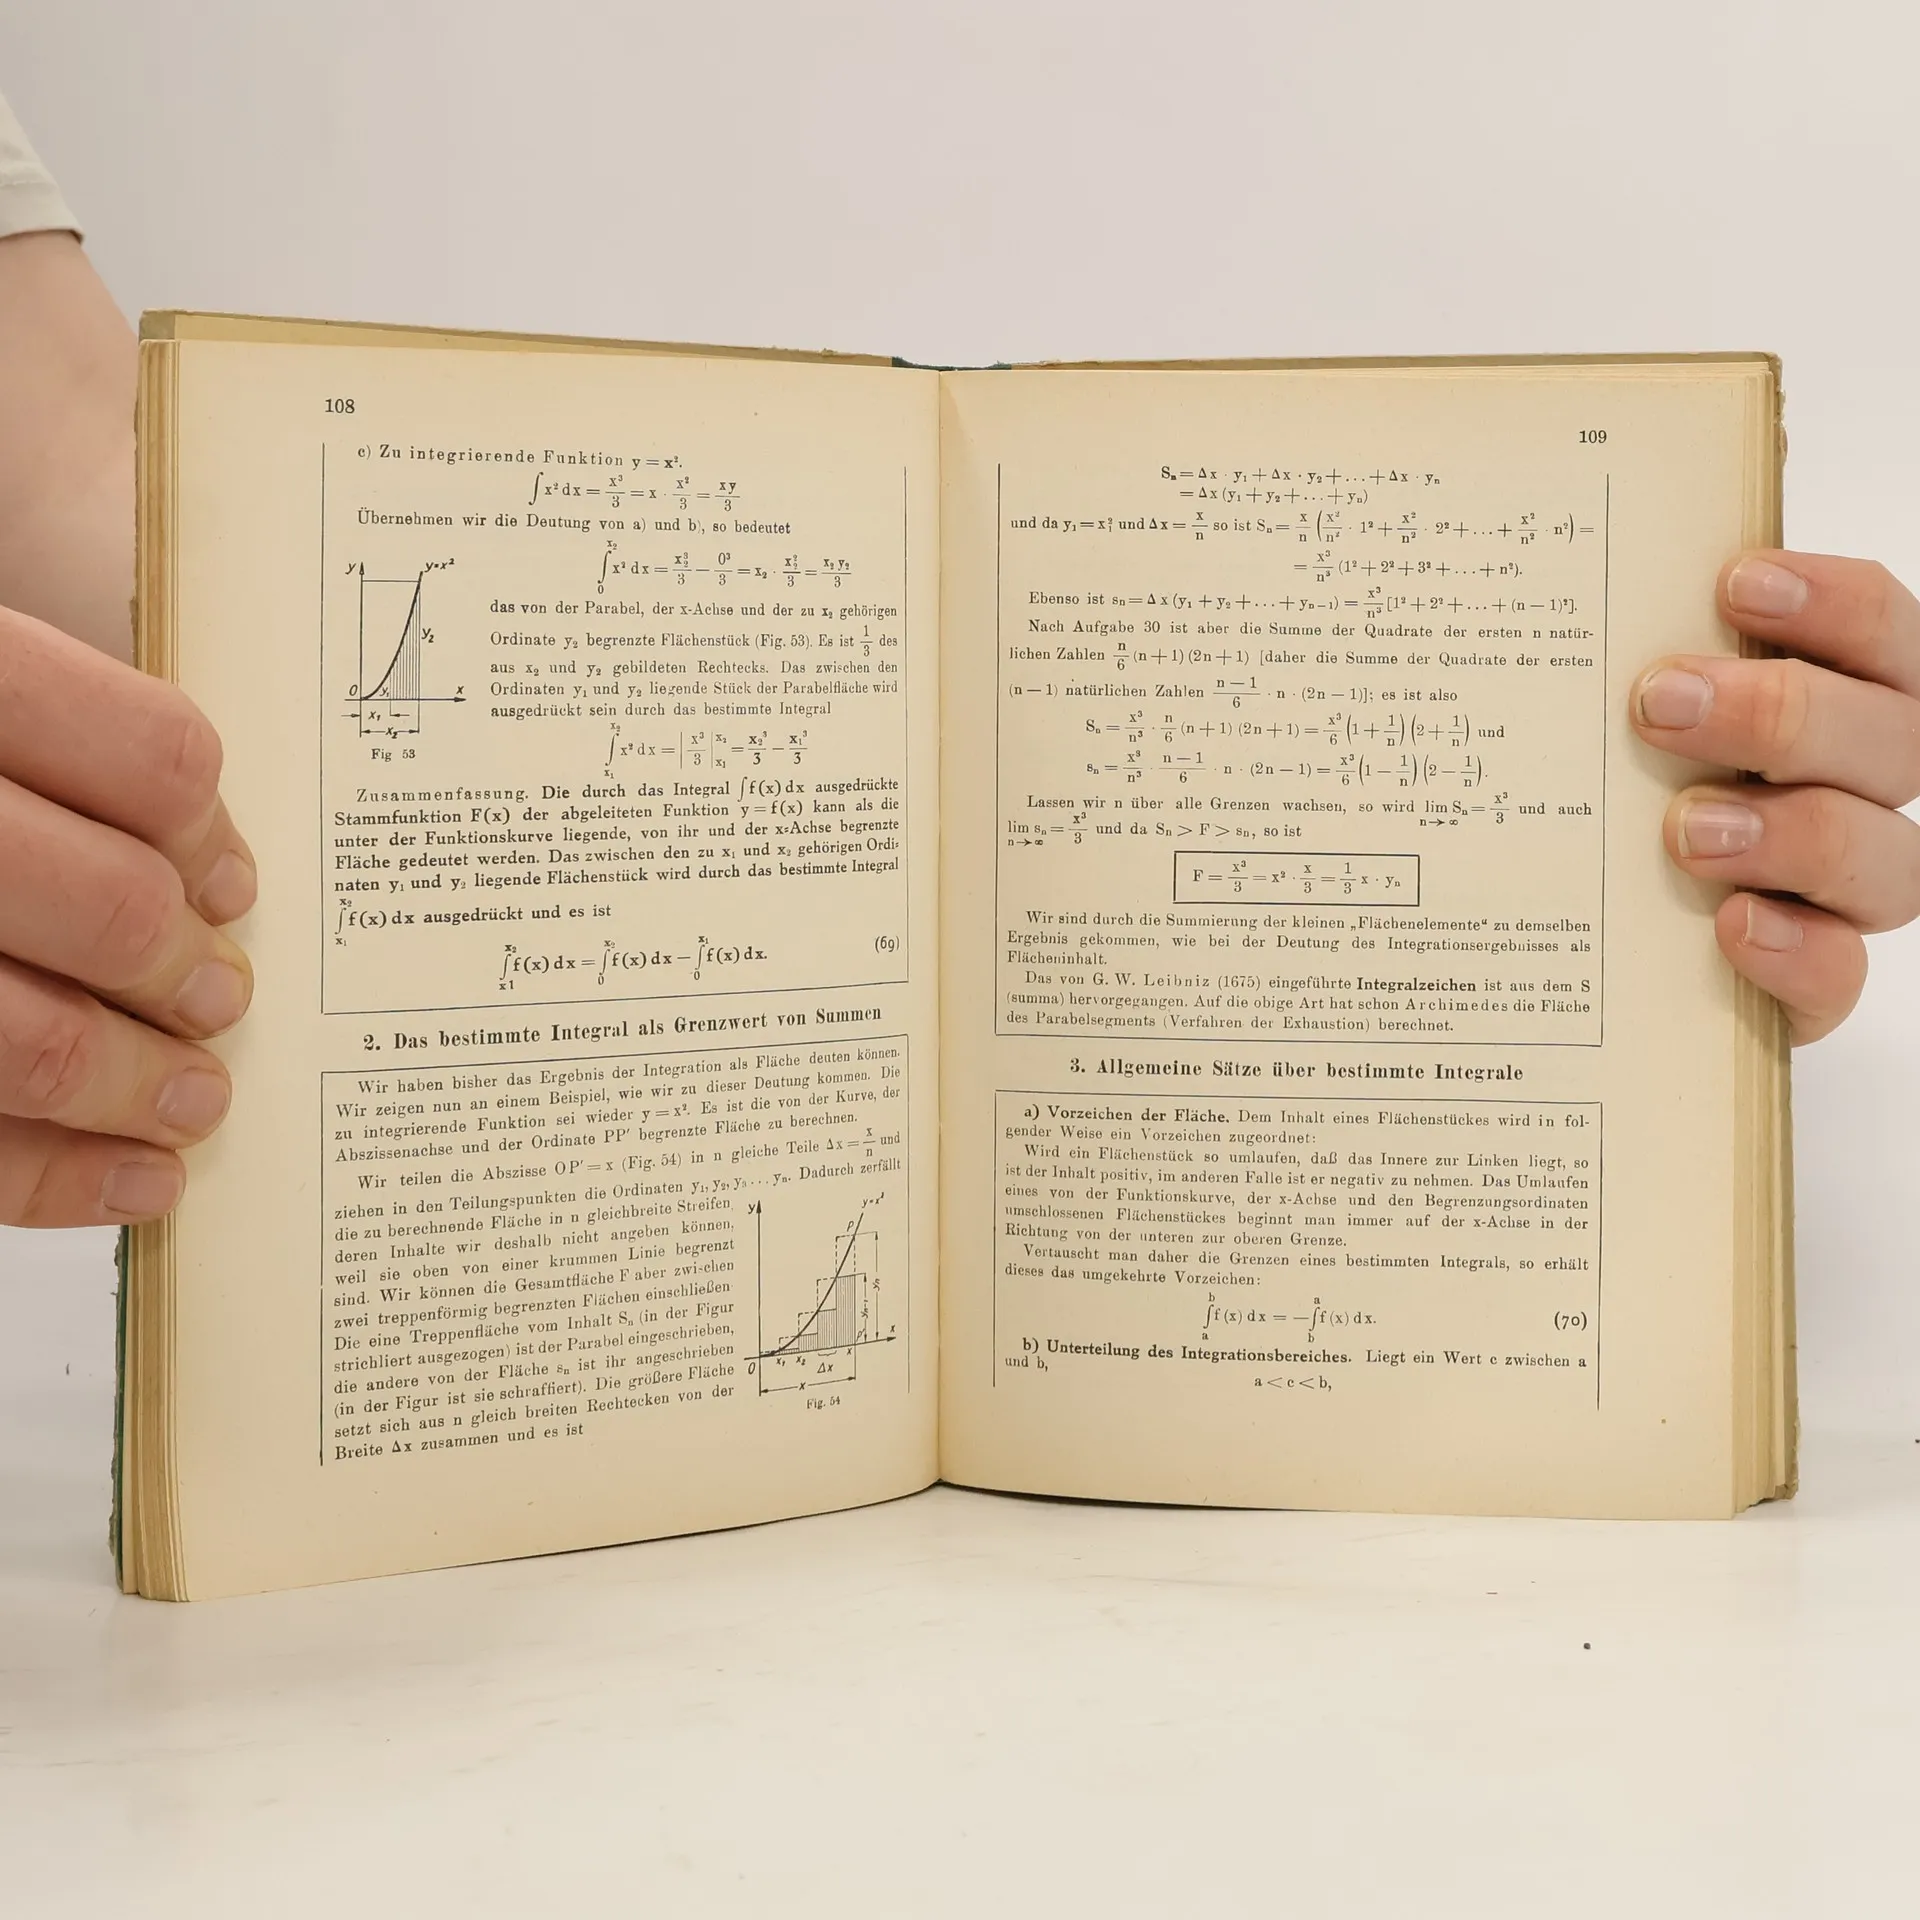 108
c) Zu integrierende Funktion y = x².
∫x² dx = x³/3 = x · x²/3 = xy/3
Übernehmen wir die Deutung von a) und b), so bedeutet
∫₀^x₂ x² dx = x₂³/3 − 0³/3 = x₂ · x₂²/3 = x₂ y₂/3
y
y=x²
y₂
y₁
0
x
x₁
x₂
Fig 53
das von der Parabel, der x-Achse und der zu x₂ gehörigen
Ordinate y₂ begrenzte Flächenstück (Fig. 53). Es ist 1/3 des
aus x₂ und y₂ gebildeten Rechtecks. Das zwischen den
Ordinaten y₁ und y₂ liegende Stück der Parabelfläche wird
ausgedrückt sein durch das bestimmte Integral
∫x₁^x₂ x² dx = |x³/3|x₁^x₂ = x₂³/3 − x₁³/3
Zusammenfassung. Die durch das Integral ∫f(x) dx ausgedrückte
Stammfunktion F(x) der abgeleiteten Funktion y = f(x) kann als die
unter der Funktionskurve liegende, von ihr und der x-Achse begrenzte
Fläche gedeutet werden. Das zwischen den zu x₁ und x₂ gehörigen Ordi-
naten y₁ und y₂ liegende Flächenstück wird durch das bestimmte Integral
∫x₁^x₂ f(x) dx ausgedrückt und es ist
∫x1^x₂ f(x) dx = ∫₀^x₂ f(x) dx − ∫₀^x₁ f(x) dx. (69)
2. Das bestimmte Integral als Grenzwert von Summen
Wir haben bisher das Ergebnis der Integration als Fläche deuten können.
Wir zeigen nun an einem Beispiel, wie wir zu dieser Deutung kommen. Die
zu integrierende Funktion sei wieder y = x². Es ist die von der Kurve, der
Abszissenachse und der Ordinate PP′ begrenzte Fläche zu berechnen.
Wir teilen die Abszisse OP′ = x (Fig. 54) in n gleiche Teile Δx = x/n und
ziehen in den Teilungspunkten die Ordinaten y₁, y₂, y₃ ... yₙ. Dadurch zerfällt
die zu berechnende Fläche in n gleichbreite Streifen,
deren Inhalte wir deshalb nicht angeben können,
weil sie oben von einer krummen Linie begrenzt
sind. Wir können die Gesamtfläche F aber zwischen
zwei treppenförmig begrenzten Flächen einschließen
Die eine Treppenfläche vom Inhalt Sₙ (in der Figur
strichliert ausgezogen) ist der Parabel eingeschrieben,
die andere von der Fläche sₙ ist ihr angeschrieben
(in der Figur ist sie schraffiert). Die größere Fläche
setzt sich aus n gleich breiten Rechtecken von der
Breite Δx zusammen und es ist
y
y=x²
P
yₙ
yₙ₋₁
P′
x
0
x₁ x₂ x
Δx
x
Fig. 54
109
Sₙ = Δx · y₁ + Δx · y₂ + ... + Δx · yₙ
= Δx (y₁ + y₂ + ... + yₙ)
und da y₁ = x₁² und Δx = x/n so ist Sₙ = x/n (x²/n² · 1² + x²/n² · 2² + ... + x²/n² · n²) =
= x³/n³ (1² + 2² + 3² + ... + n²).
Ebenso ist sₙ = Δx (y₁ + y₂ + ... + yₙ₋₁) = x³/n³ [1² + 2² + ... + (n − 1)²].
Nach Aufgabe 30 ist aber die Summe der Quadrate der ersten n natür-
lichen Zahlen n/6 (n + 1) (2n + 1) [daher die Summe der Quadrate der ersten
(n − 1) natürlichen Zahlen (n − 1)/6 · n · (2n − 1)]; es ist also
Sₙ = x³/n³ · n/6 (n + 1) (2n + 1) = x³/6 (1 + 1/n) (2 + 1/n) und
sₙ = x³/n³ · (n − 1)/6 · n · (2n − 1) = x³/6 (1 − 1/n) (2 − 1/n).
Lassen wir n über alle Grenzen wachsen, so wird lim n→∞ Sₙ = x³/3 und auch
lim n→∞ sₙ = x³/3 und da Sₙ > F > sₙ, so ist
F = x³/3 = x² · x/3 = 1/3 x · yₙ
Wir sind durch die Summierung der kleinen „Flächenelemente“ zu demselben
Ergebnis gekommen, wie bei der Deutung des Integrationsergebnisses als
Flächeninhalt.
Das von G. W. Leibniz (1675) eingeführte Integralzeichen ist aus dem S
(summa) hervorgegangen. Auf die obige Art hat schon Archimedes die Fläche
des Parabelsegments (Verfahren der Exhaustion) berechnet.
3. Allgemeine Sätze über bestimmte Integrale
a) Vorzeichen der Fläche. Dem Inhalt eines Flächenstückes wird in fol-
gender Weise ein Vorzeichen zugeordnet:
Wird ein Flächenstück so umlaufen, daß das Innere zur Linken liegt, so
ist der Inhalt positiv, im anderen Falle ist er negativ zu nehmen. Das Umlaufen
eines von der Funktionskurve, der x-Achse und den Begrenzungsordinaten
umschlossenen Flächenstückes beginnt man immer auf der x-Achse in der
Richtung von der unteren zur oberen Grenze.
Vertauscht man daher die Grenzen eines bestimmten Integrals, so erhält
dieses das umgekehrte Vorzeichen:
∫ₐ^b f(x) dx = −∫b^a f(x) dx. (70)
b) Unterteilung des Integrationsbereiches. Liegt ein Wert c zwischen a
und b,
a < c < b,